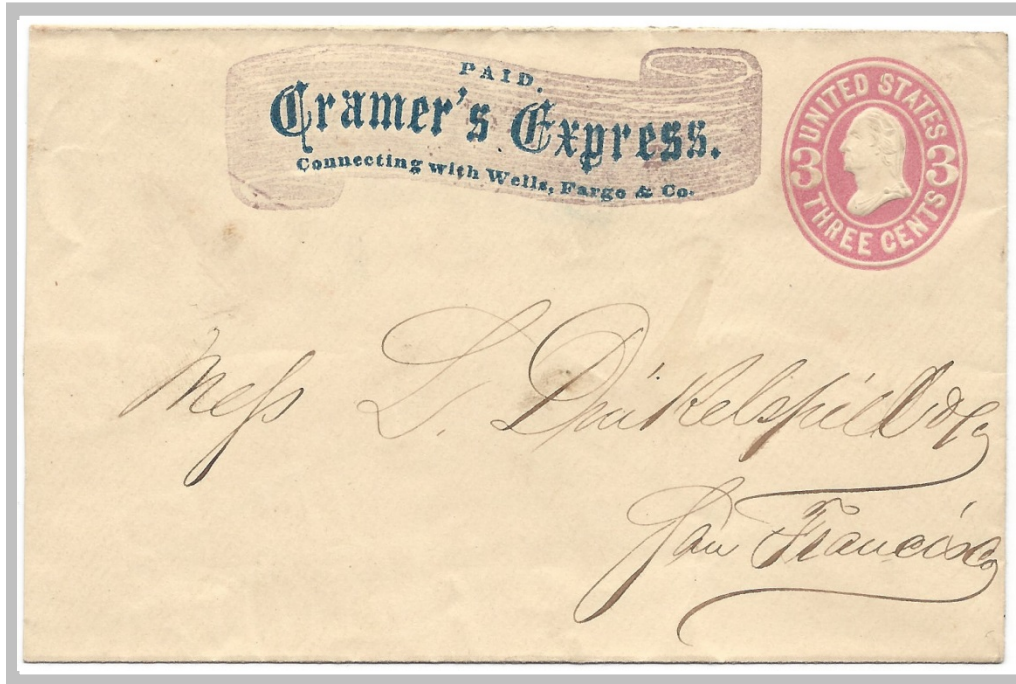 PAID.
Cramer's Express.
Connecting with Wells, Fargo & Co.
UNITED STATES
3 3
THREE CENTS
Mess L. Dinkelspiel & Co
San Francisco